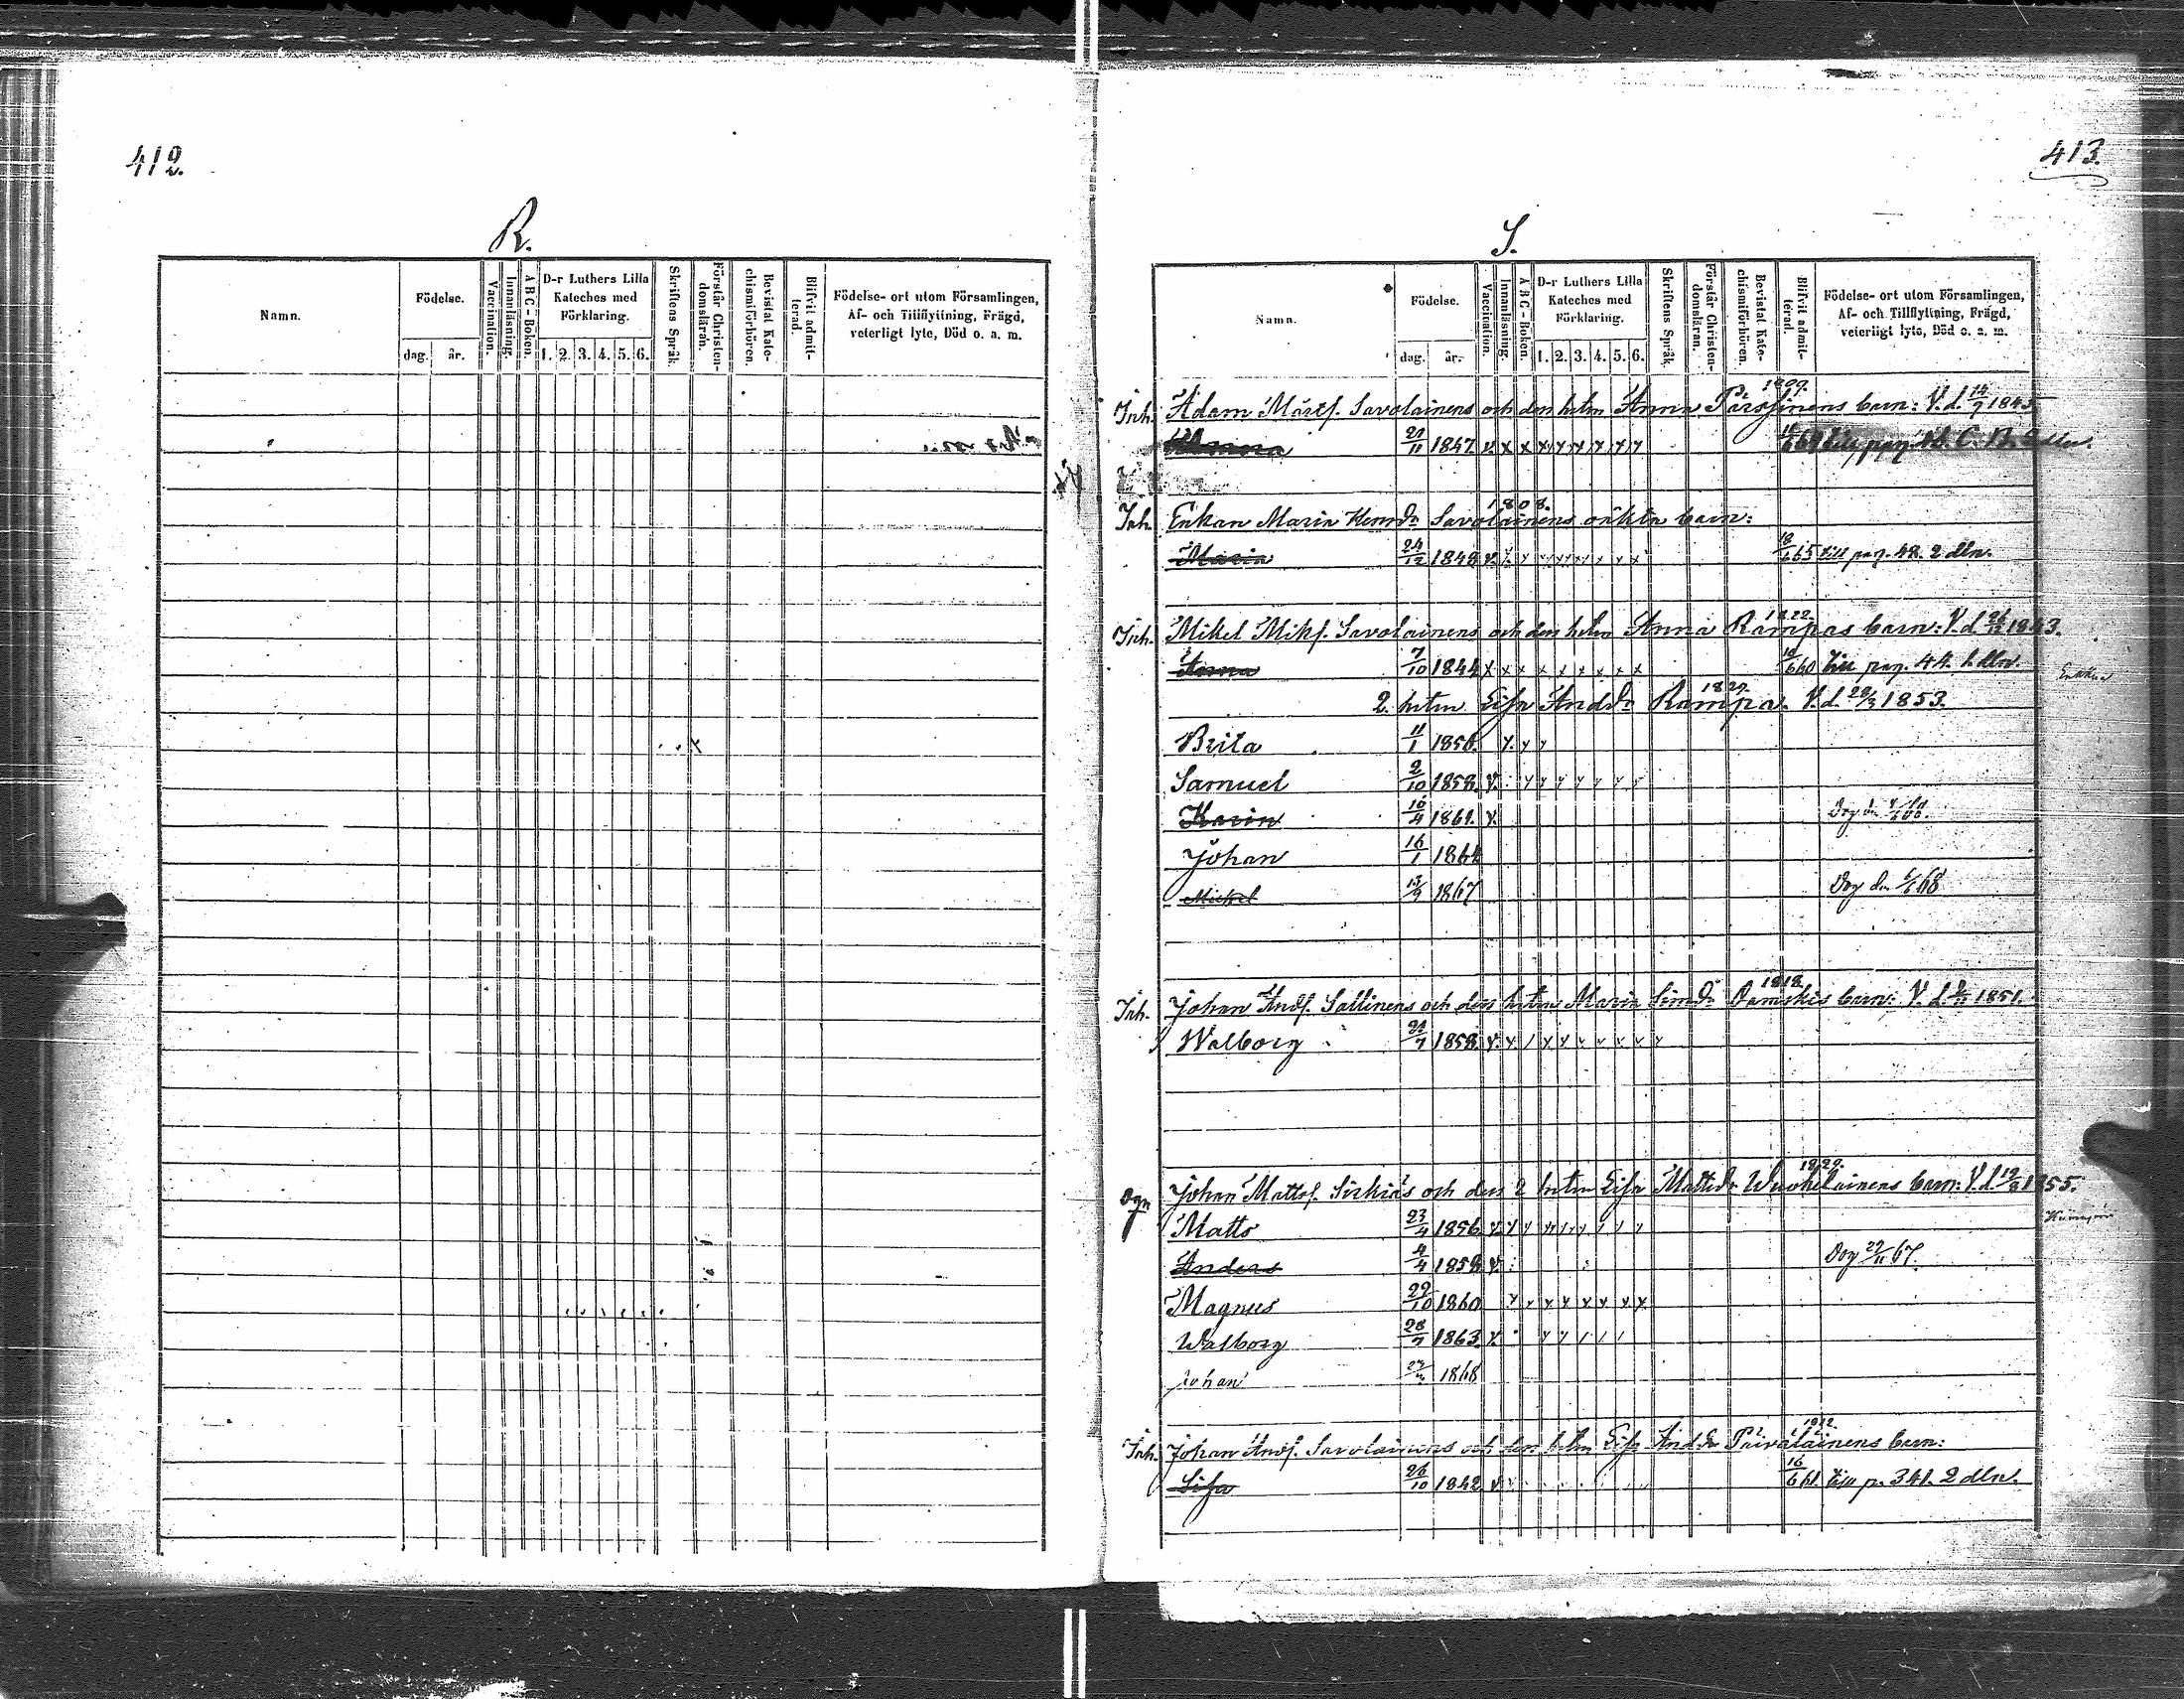 412.
R.
Namn.
Födelse.
dag. år.
Vaccination.
Innanläsning.
A B C - Boken.
D-r Luthers Lilla
Kateches med
Förklaring.
1. 2. 3. 4. 5. 6.
Skriftens Språk.
Förstår Christen-
domsläran.
Bevistat Kate-
chismiförhören.
Blifvit admit-
terad.
Födelse- ort utom Församlingen,
Af- och Tillflyttning, Frägd,
veterligt lyte, Död o. a. m.
413.
S.
Namn.
Födelse.
dag. år.
Vaccination.
Innanläsning.
A B C - Boken.
D-r Luthers Lilla
Kateches med
Förklaring.
1. 2. 3. 4. 5. 6.
Skriftens Språk
Förstår Christen-
domsläran.
Bevistat Kate-
chismiförhören.
Blifvit admit-
terad.
Födelse- ort utom Församlingen,
Af- och Tillflyttning, Frägd,
veterligt lyte, Död o. a. m.
1809.
Inh. Adam Märts. Savolainens och dess hstru Anna Pärssinens barn: V. d. 14/7 1845
11 1847. v. x x x x x x x x till pag.
1808.
Inh. Enkan Maria Henrdr Savolainens oäkta barn:
Maria 24/12 1848 v. x x x x x x x x 18/6 65 till pag. 48. 2 dln.
1822.
Inh. Mikel Miks. Savolainens och dess hstru Anna Rampas barn: V. d. 1843.
Anna 7/10 1844 x x x x x x x x x 10/6 60 till pag. 44. 1. dln.
1829.
2. hstru Lisa Andsdr Rampa. V. d. 28/3 1853.
Brita 11/1 1856. x. x x
Samuel 2/10 1858. v. x x x x x x x
Karin 10/4 1861. v. Dog d.
Johan 16/1 1864
Mickel 13/9 1867 Dog d. 68
1818.
Inh. Johan Ands. Sallinens och dess hstru Maria Simdr Damskis barn: V. d. 1851.
Walborg 21/7 1858. v. x / x x x x x x x
1829.
Johan Matts. Sirkiäs och dess 2 hstru Lisa Mattsdr Wuohelainens barn: V. d. 19/8 1855.
Matts 23/4 1856. v. x x x x x x x x
Anders 4/4 1858. v. Dog 29/11 67.
Magnus 29/10 1860 x x x x x x x x
Walborg 28/7 1863. x. x x / / /
Johan 1868
1812.
Inh. Johan Ands. Savolainens och dess hstru Lisa Andsdr Päivaläinens barn:
Lisa 26/10 1842 v. 16/6 61. till p. 341. 2 dln.